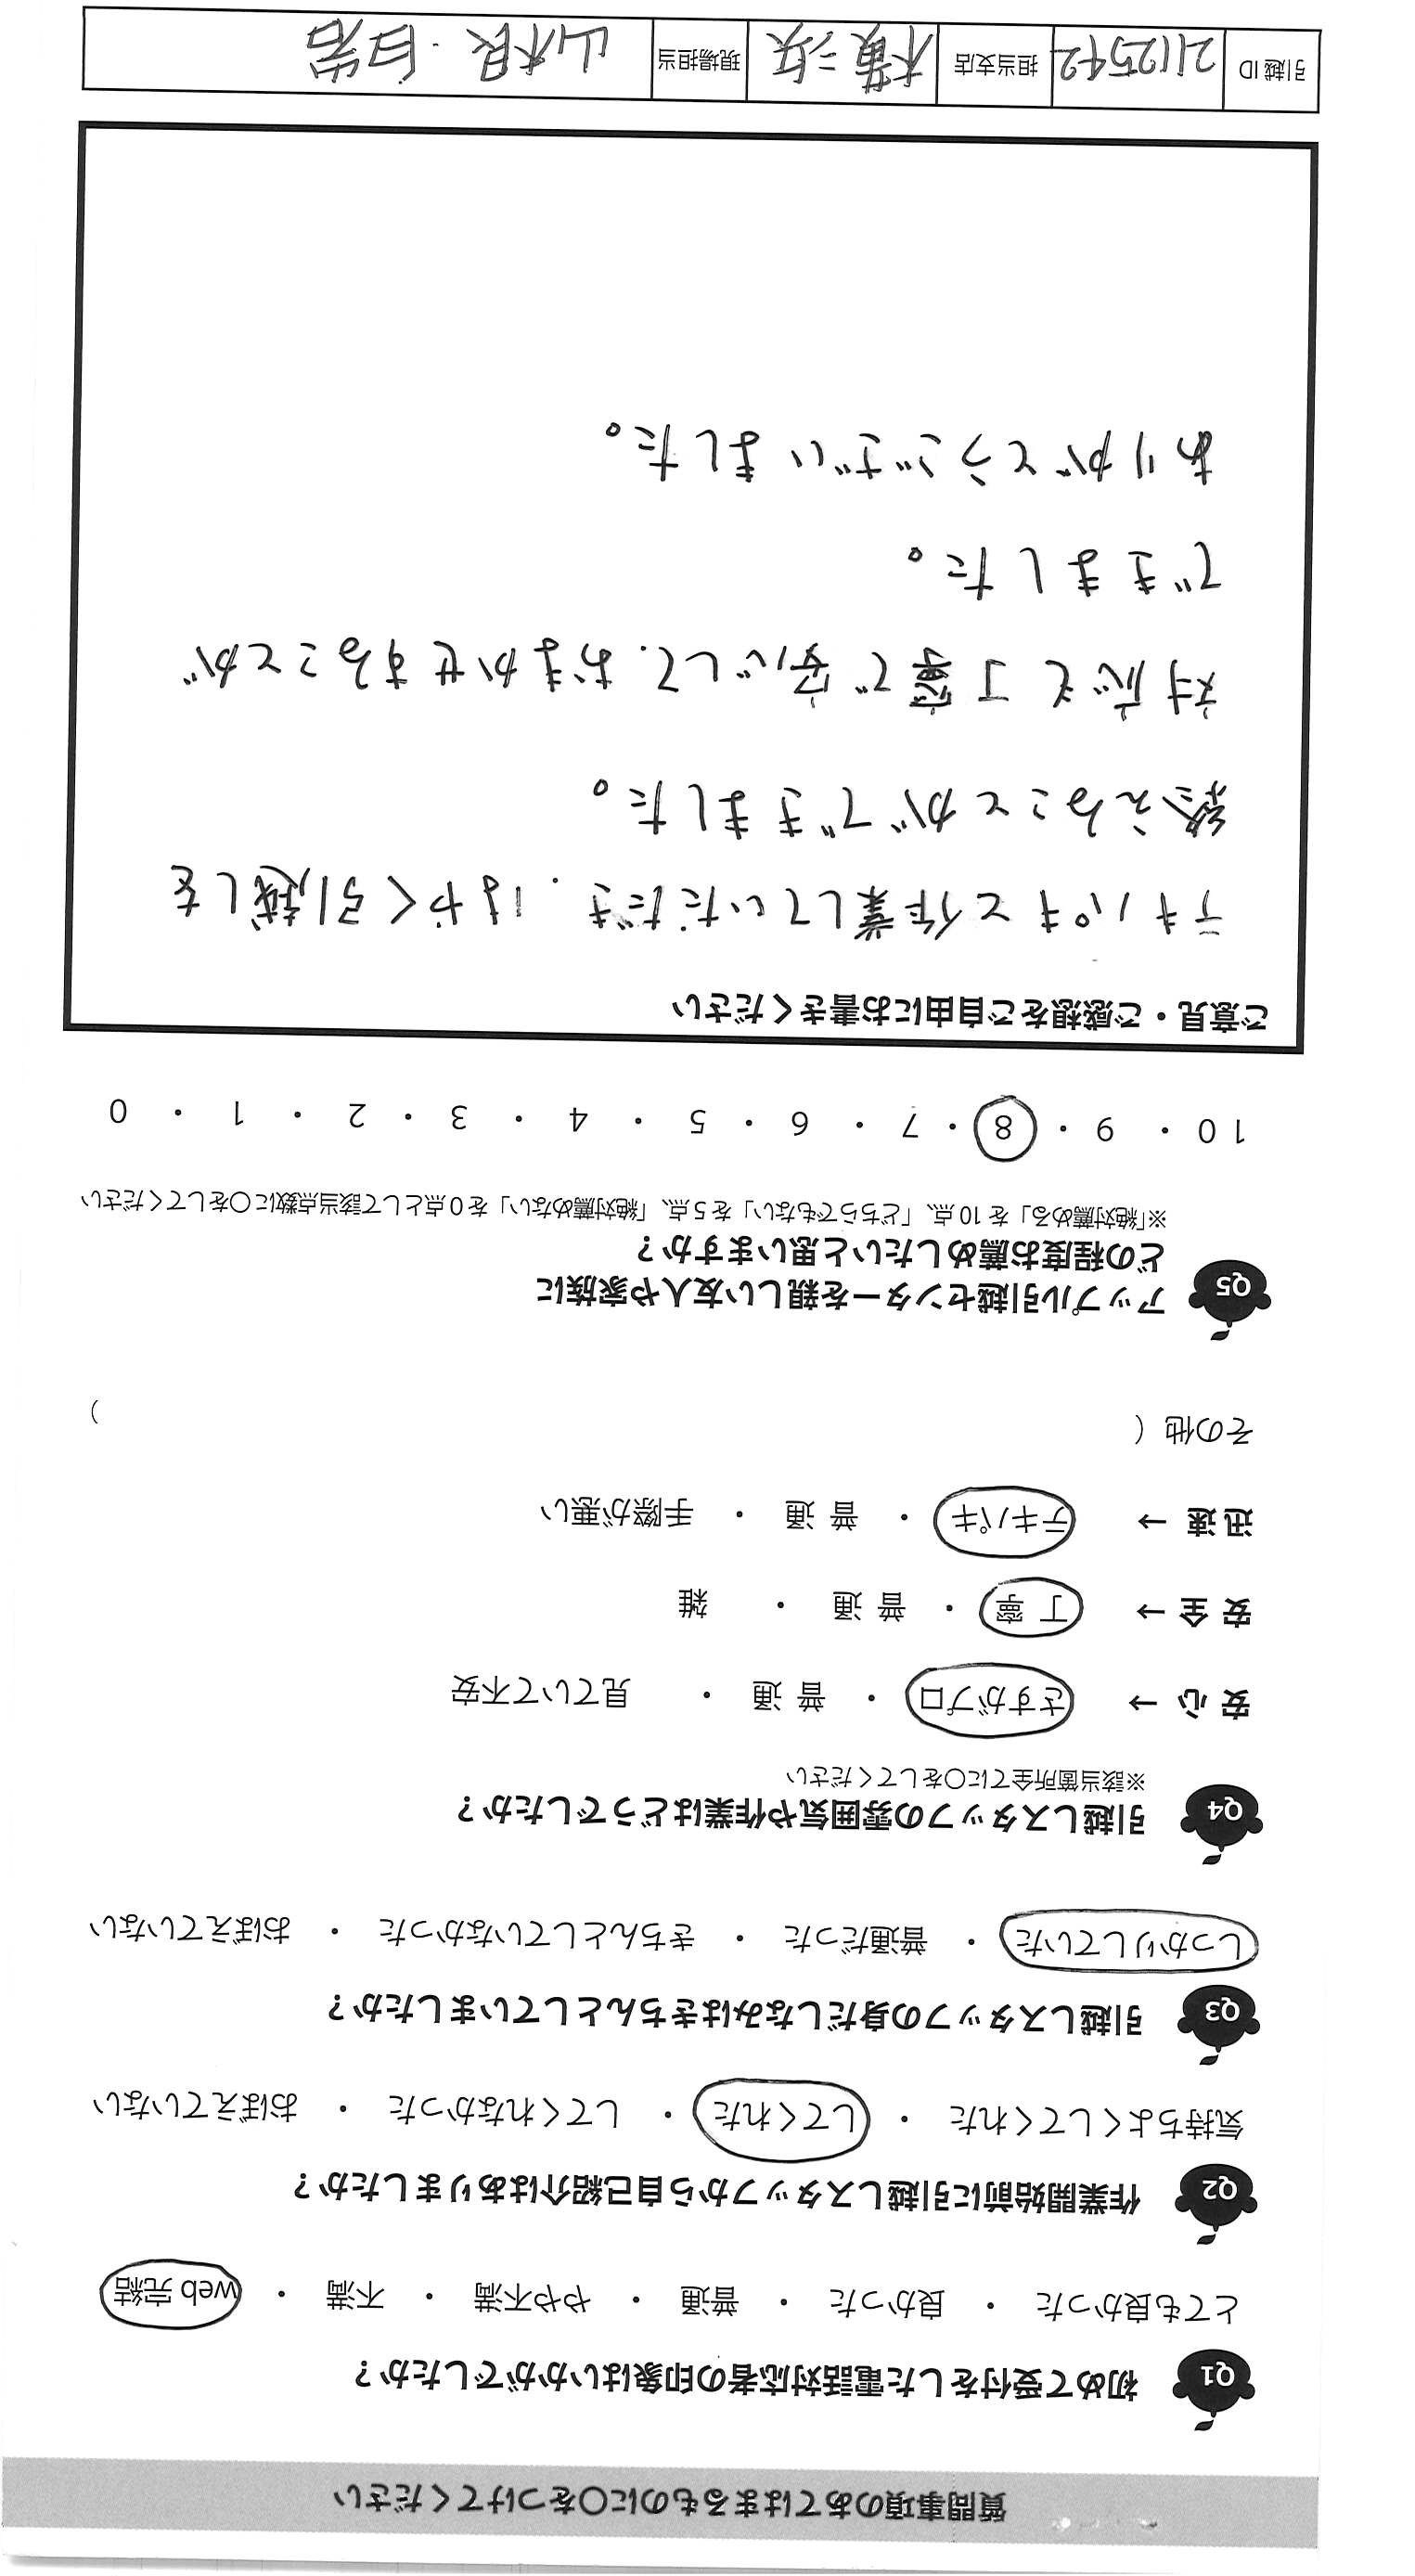 質問事項のあてはまるものに〇をつけてください
Q1 初めて受付をした電話対応者の印象はいかがでしたか？
とても良かった ・ 良かった ・ 普通 ・ やや不満 ・ 不満 ・ web 完結
Q2 作業開始前に引越しスタッフから自己紹介はありましたか？
気持ちよくしてくれた ・ してくれた ・ してくれなかった ・ おぼえていない
Q3 引越しスタッフの身だしなみはきちんとしていましたか？
しっかりしていた ・ 普通だった ・ きちんとしていなかった ・ おぼえていない
Q4 引越しスタッフの雰囲気や作業はどうでしたか？
※該当箇所全てに〇をしてください
安 心 → さすがプロ ・ 普 通 ・ 見ていて不安
安 全 → 丁 寧 ・ 普 通 ・ 雑
迅 速 → テキパキ ・ 普 通 ・ 手際が悪い
その他（ ）
Q5 アップル引越センターを親しい友人や家族に
どの程度お薦めしたいと思いますか？
※「絶対薦める」を 10 点、「どちらでもない」を 5 点、「絶対薦めない」を 0 点として該当点数に〇をしてください
10 ・ 9 ・ 8 ・ 7 ・ 6 ・ 5 ・ 4 ・ 3 ・ 2 ・ 1 ・ 0
ご意見・ご感想をご自由にお書きください
テキパキと作業していただき、はやく引越しを
終えることができました。
対応も丁寧で安心して、おまかせすることが
できました。
ありがとうございました。
引越 ID 2112542 担当支店 横浜 現場担当 山根・白岩